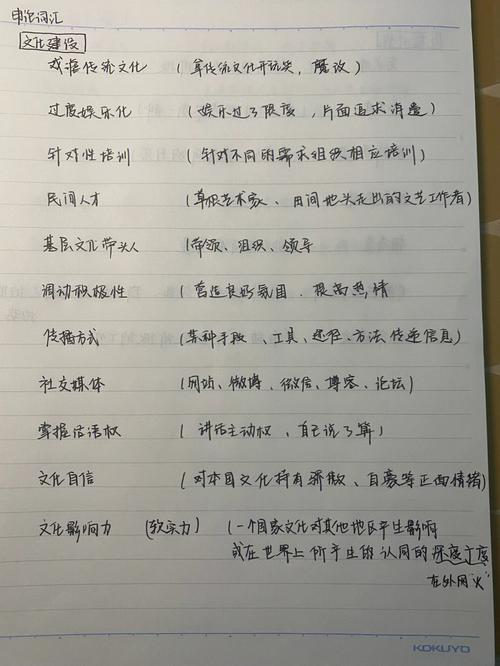 申论词汇
文化建设
戏谑传统文化 （拿传统文化开玩笑，魔改）
过度娱乐化 （娱乐过了限度，片面追求消遣）
针对性培训 （针对不同的需求组织相应培训）
民间人才 （草根艺术家、田间地头走出的文艺工作者）
基层文化带头人 （带领、组织、领导
调动积极性 （营造良好氛围，提高热情
传播方式 （某种手段、工具、途径、方法传递信息）
社交媒体 （网站、微博、微信、博客、论坛）
掌握话语权 （讲话主动权、自己说了算）
文化自信 （对本国文化持有骄傲、自豪等正面情绪）
文化影响力 （软实力） （一个国家文化对其他地区产生影响
或在世界上所产生的认同的深度广度
在外网"火"
KOKUYO